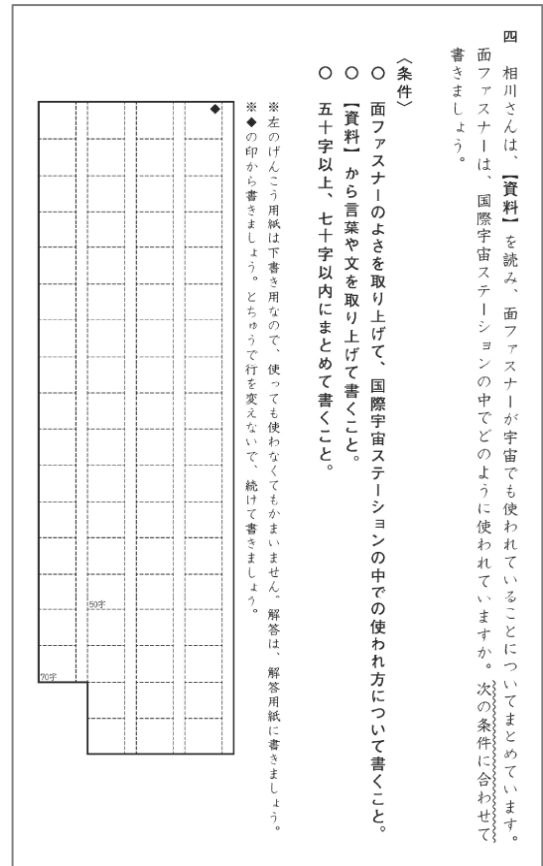 四 相川さんは、【資料】を読み、面ファスナーが宇宙でも使われていることについてまとめています。
面ファスナーは、国際宇宙ステーションの中でどのように使われていますか。次の条件に合わせて
書きましょう。
〈条件〉
○ 面ファスナーのよさを取り上げて、国際宇宙ステーションの中での使われ方について書くこと。
○ 【資料】から言葉や文を取り上げて書くこと。
○ 五十字以上、七十字以内にまとめて書くこと。
※左のげんこう用紙は下書き用なので、使っても使わなくてもかまいません。解答は、解答用紙に書きましょう。
※◆の印から書きましょう。とちゅうで行を変えないで、続けて書きましょう。
◆
50字
70字